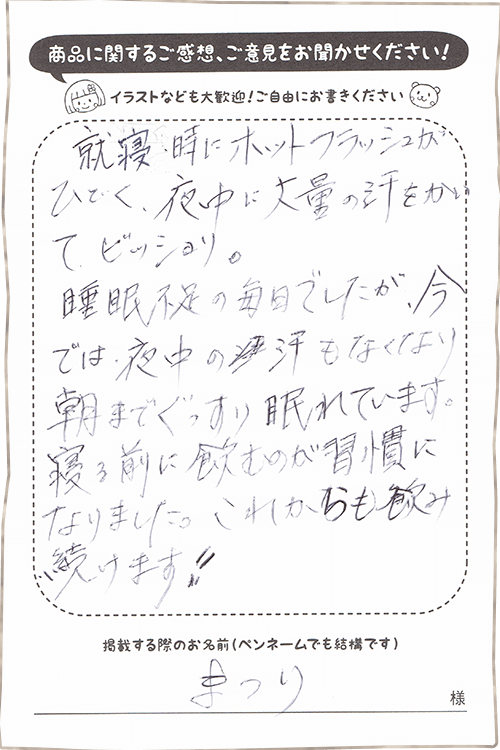 商品に関するご感想、ご意見をお聞かせください!
イラストなども大歓迎!ご自由にお書きください
就寝時にホットフラッシュが
ひどく、夜中に大量の汗をかい
て、ビッショリ。
睡眠不足の毎日でしたが、今
では、夜中の汗もなくなり
朝までぐっすり眠れています。
寝る前に飲むのが習慣に
なりました。これからも飲み
続けます!!
掲載する際のお名前(ペンネームでも結構です)
まつり
様